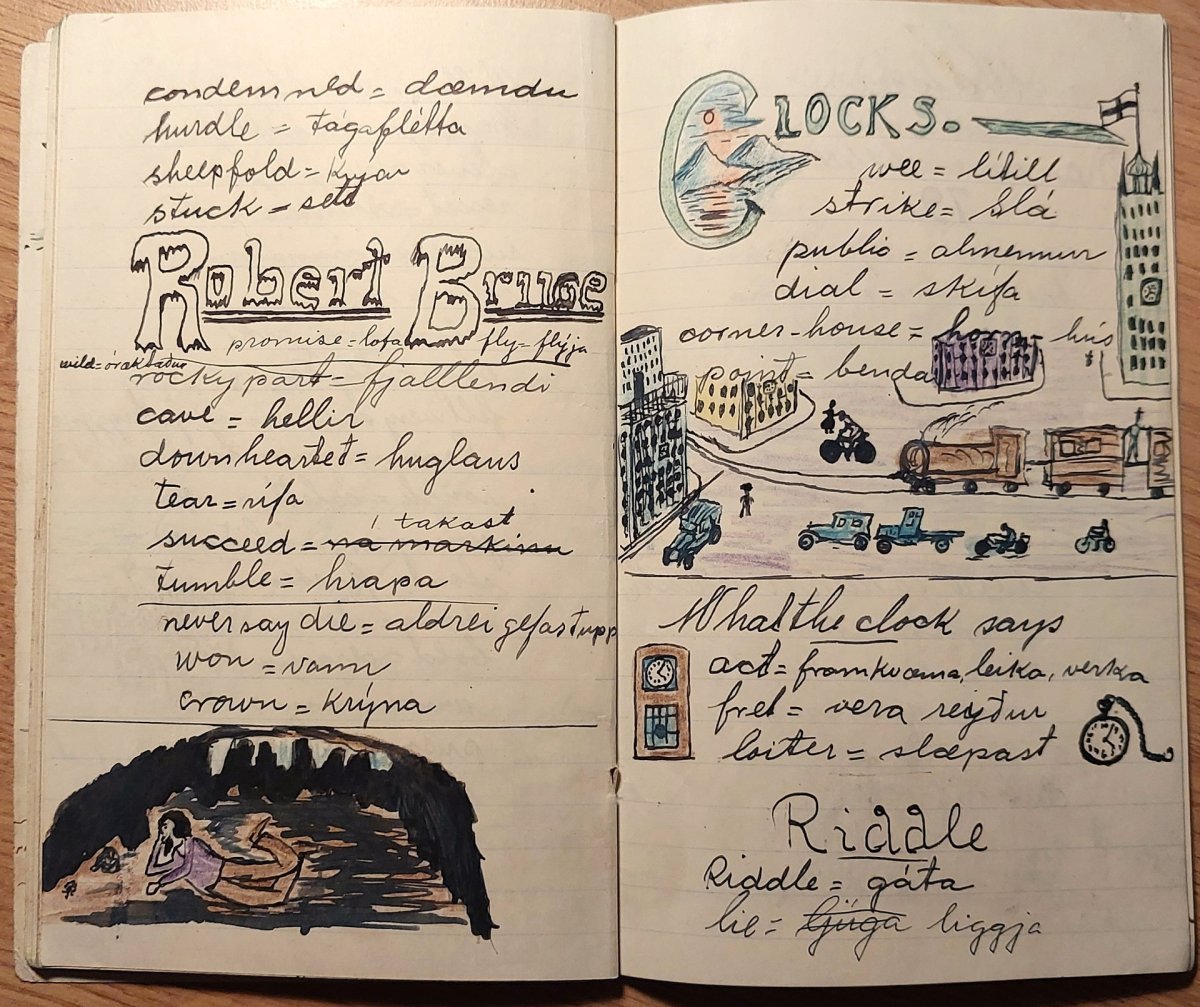 condemned = dæmdu
hurdle = tágaflétta
sheepfold = kvíar
stuck = sett
Robert Bruce
promise = lofa fly = flýja
wild = óræktaður
rocky part = fjalllendi
cave = hellir
downhearted = huglaus
tear = rífa
takast
succeed = ná markinu
tumble = hrapa
never say die = aldrei gefast upp
won = vann
crown = krýna
CLOCKS.
wee = lítill
strike = slá
public = almennur
dial = skífa
corner-house = horn hús
point = benda
What the clock says
act = framkvæma, leika, verka
fret = vera reiður
loiter = slæpast
Riddle
Riddle = gáta
lie = ljúga liggja